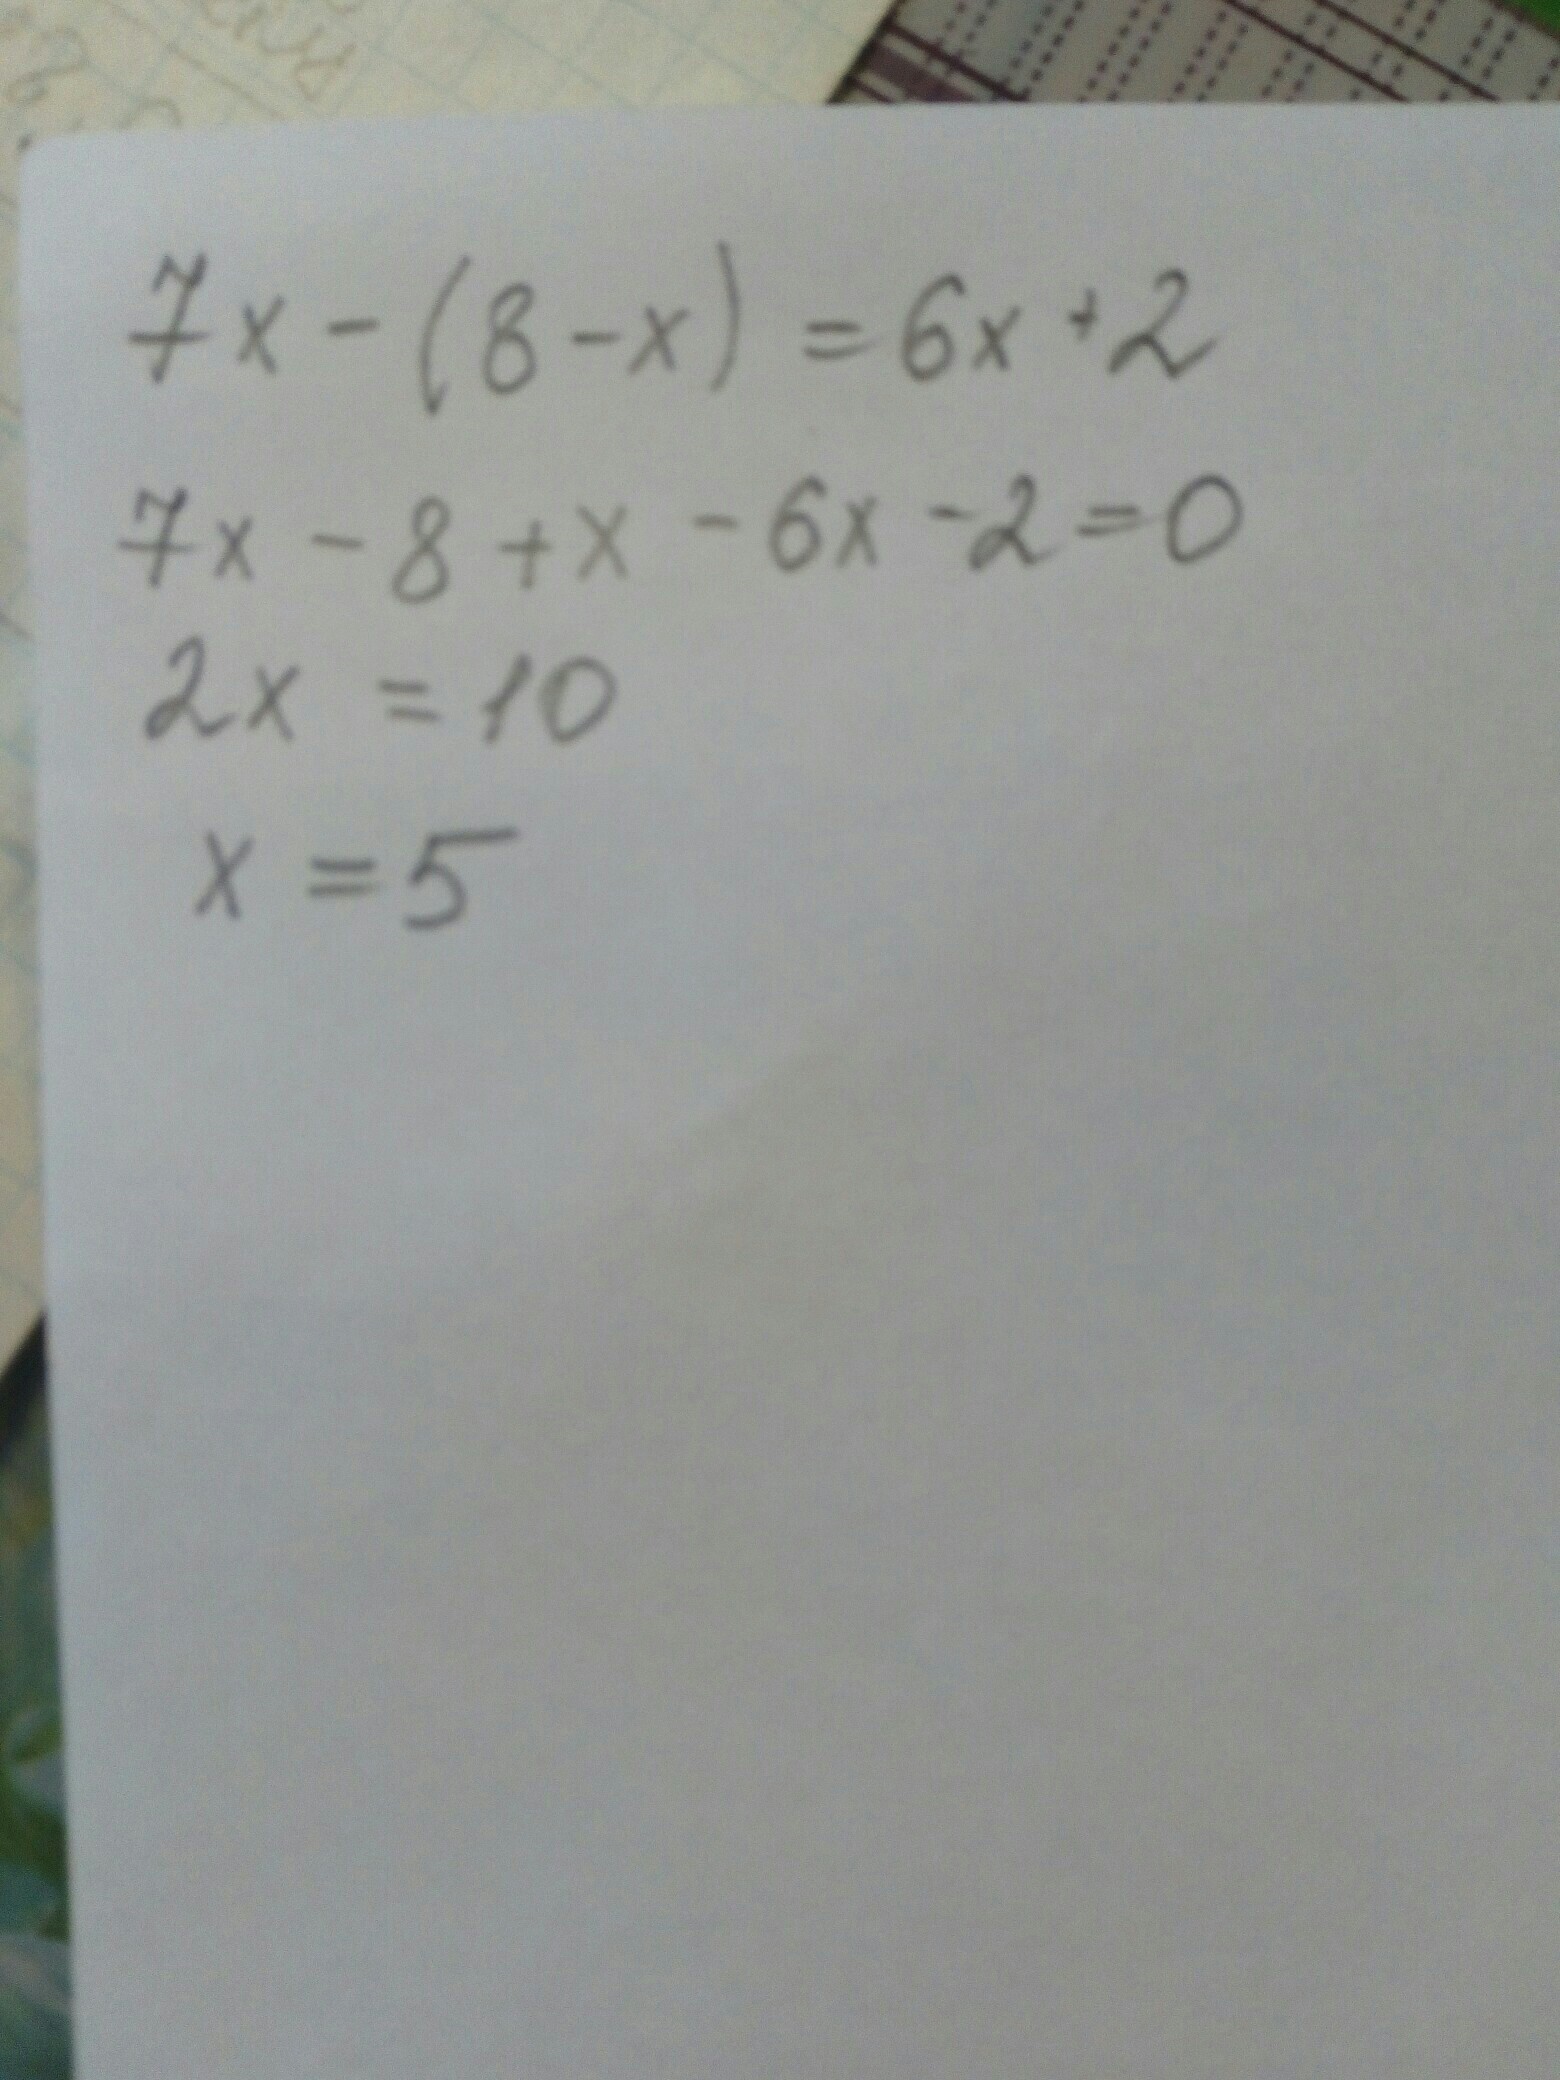 7x - (8 - x) = 6x + 2
7x - 8 + x - 6x - 2 = 0
2x = 10
x = 5